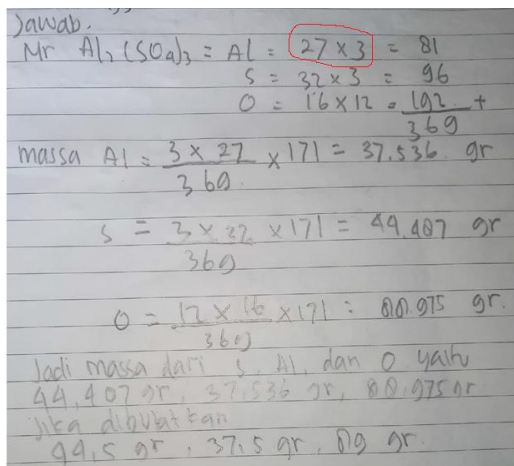 Jawab.
Mr Al2(SO4)3 = Al = 27 x 3 = 81
S = 32 x 3 = 96
O = 16 x 12 = 192 +
369
massa Al = 3 x 27 / 369 x 171 = 37.536 gr
S = 3 x 32 / 369 x 171 = 44.487 gr
O = 12 x 16 / 369 x 171 = 88.975 gr.
Jadi massa dari S, Al, dan O yaitu
44,407 gr, 37,536 gr, 88,975 gr
jika dibulatkan
44,5 gr, 37,5 gr, 89 gr.